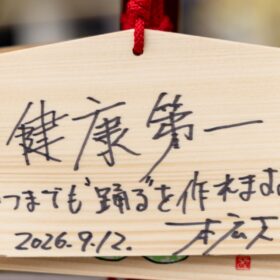 健康第一
つまでも“踊る”を作れますよ
2026.9.12. 本広